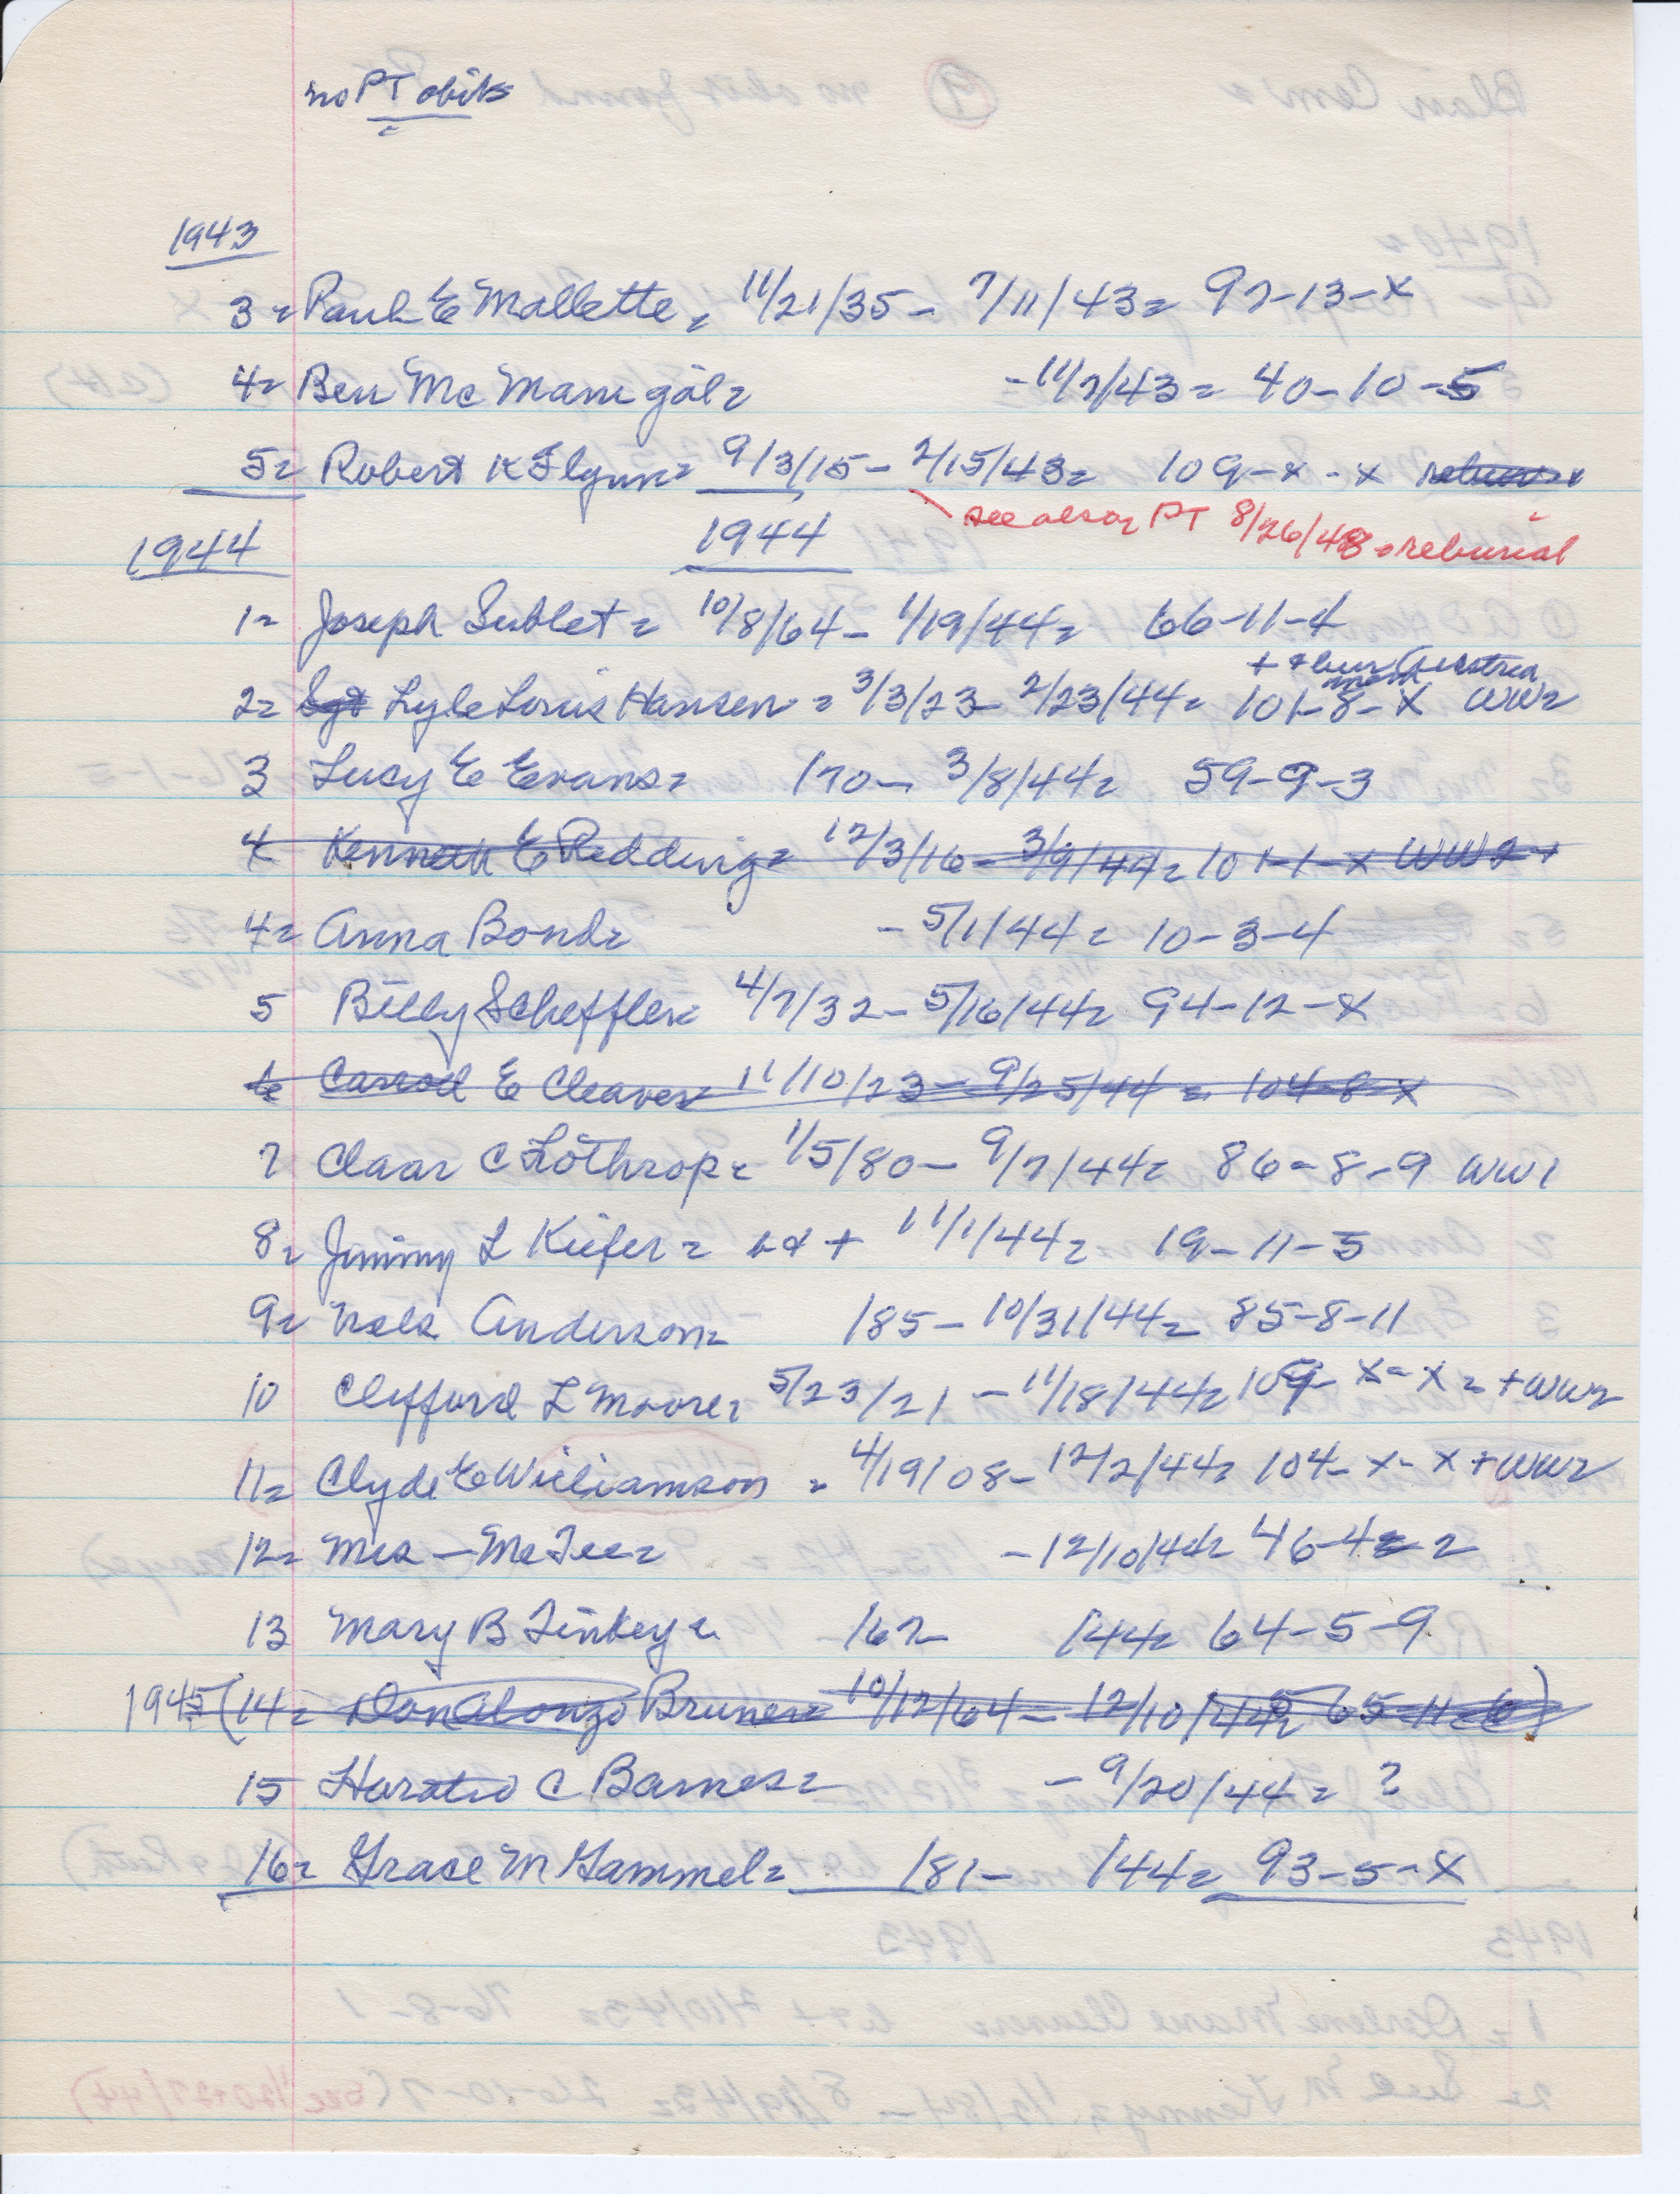 no PT obits
1943
3= Paul E Mallette = 11/21/35 - 7/11/43 = 97-13-X
4= Ben McManigal = - 11/7/43 = 40-10-5
5= Robert K Flynn = 9/3/15 - 2/15/43 = 109-x-x
see also PT 8/26/48 = reburial
1944 1944
1= Joseph Sublet = 10/8/64 - 1/19/44 = 66-11-4
+ bur Austria
2= Sgt Lyle Louis Hansen = 3/3/23 - 2/23/44 = 101-8-X WW2
3 Lucy E Evans = 170 - 3/8/44 = 59-9-3
4 Kenneth E Redding = 12/3/16 - 3/9/44 = 101-1-x WW2 +
4= Anna Bond = - 5/1/44 = 10-3-4
5 Billy Scheffler = 4/7/32 - 5/16/44 = 94-12-X
6 Carrol E Cleaver 11/10/23 - 9/25/44 = 104-8-X
7 Claar C Lothrop = 1/5/80 - 9/7/44 = 86-8-9 WW1
8= Jimmy L Kiefer = b+d + 11/1/44 = 19-11-5
9= Nels Anderson = 185 - 10/31/44 = 85-8-11
10 Clifford L Moore = 5/23/21 - 11/18/44 = 109-X-X = + WW2
11= Clyde E Williamson = 4/19/08 - 12/2/44 = 104-X-X + WW2
12= Mrs - McFee = - 12/10/44 = 46-4-2
13 Mary B Finkey = 162 - /44 = 64-5-9
1945 (14= Don Alonzo Bruner = 10/12/64 - 12/10/44 = 65-11-6)
15 Horatio C Barnes = - 9/20/44 = ?
16= Grace M Gammel = 181 - /44 = 93-5-X